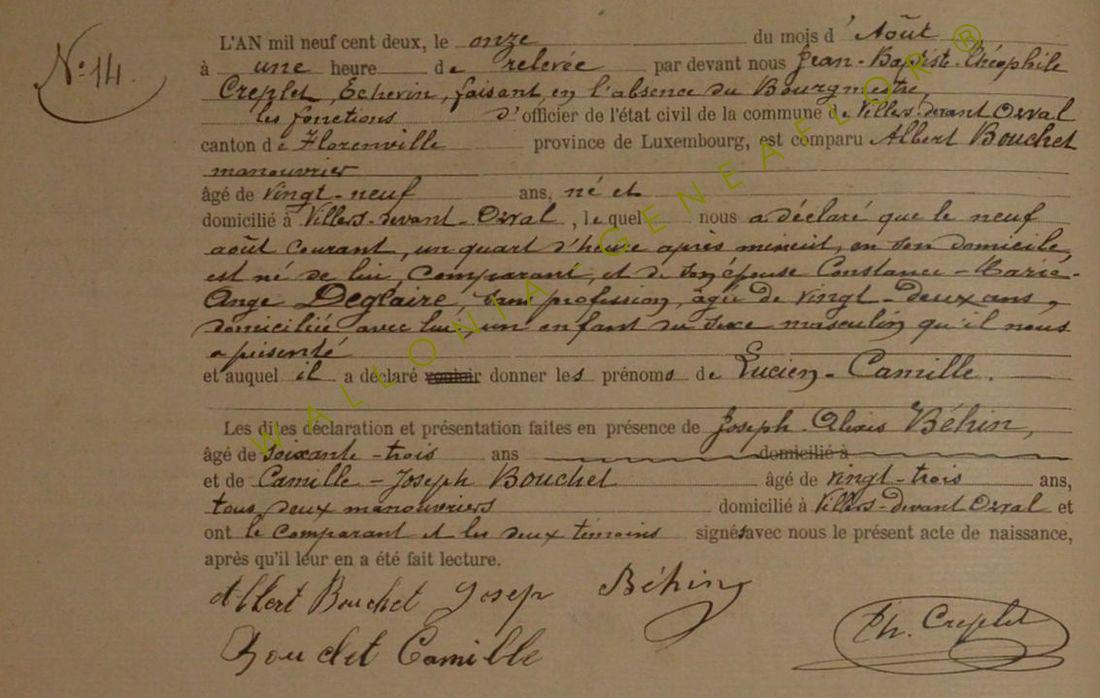 N° 14.
L'AN mil neuf cent deux, le onze du mois d'Août
à une heure de relevée par devant nous Jean-Baptiste-Théophile
Creplet, Echevin, faisant en l'absence du Bourgmestre,
les fonctions d'officier de l'état civil de la commune de Villers-devant Orval
canton de Florenville province de Luxembourg, est comparu Albert Bouchet
manouvrier
âgé de vingt-neuf ans, né et
domicilié à Villers-devant-Orval, lequel nous a déclaré que le neuf
août courant, un quart d'heure après minuit, en son domicile,
est né de lui, comparant, et de son épouse Constance-Marie-
Ange Deglaire, sans profession, âgée de vingt-deux ans,
domiciliée avec lui, un enfant du sexe masculin qu'il nous
a présenté
et auquel il a déclaré vouloir donner les prénoms de Lucien-Camille.
Les dites déclaration et présentation faites en présence de Joseph-Alexis Béhin,
âgé de soixante-trois ans domicilié à
et de Camille-Joseph Bouchet âgé de vingt-trois ans,
tous deux manouvriers domicilié à Villers-devant Orval et
ont le comparant et les deux témoins signés avec nous le présent acte de naissance,
après qu'il leur en a été fait lecture.
Albert Bouchet Josep Béhin
Bouchet Camille Th. Creplet
WALLONIA GENEALOR ®